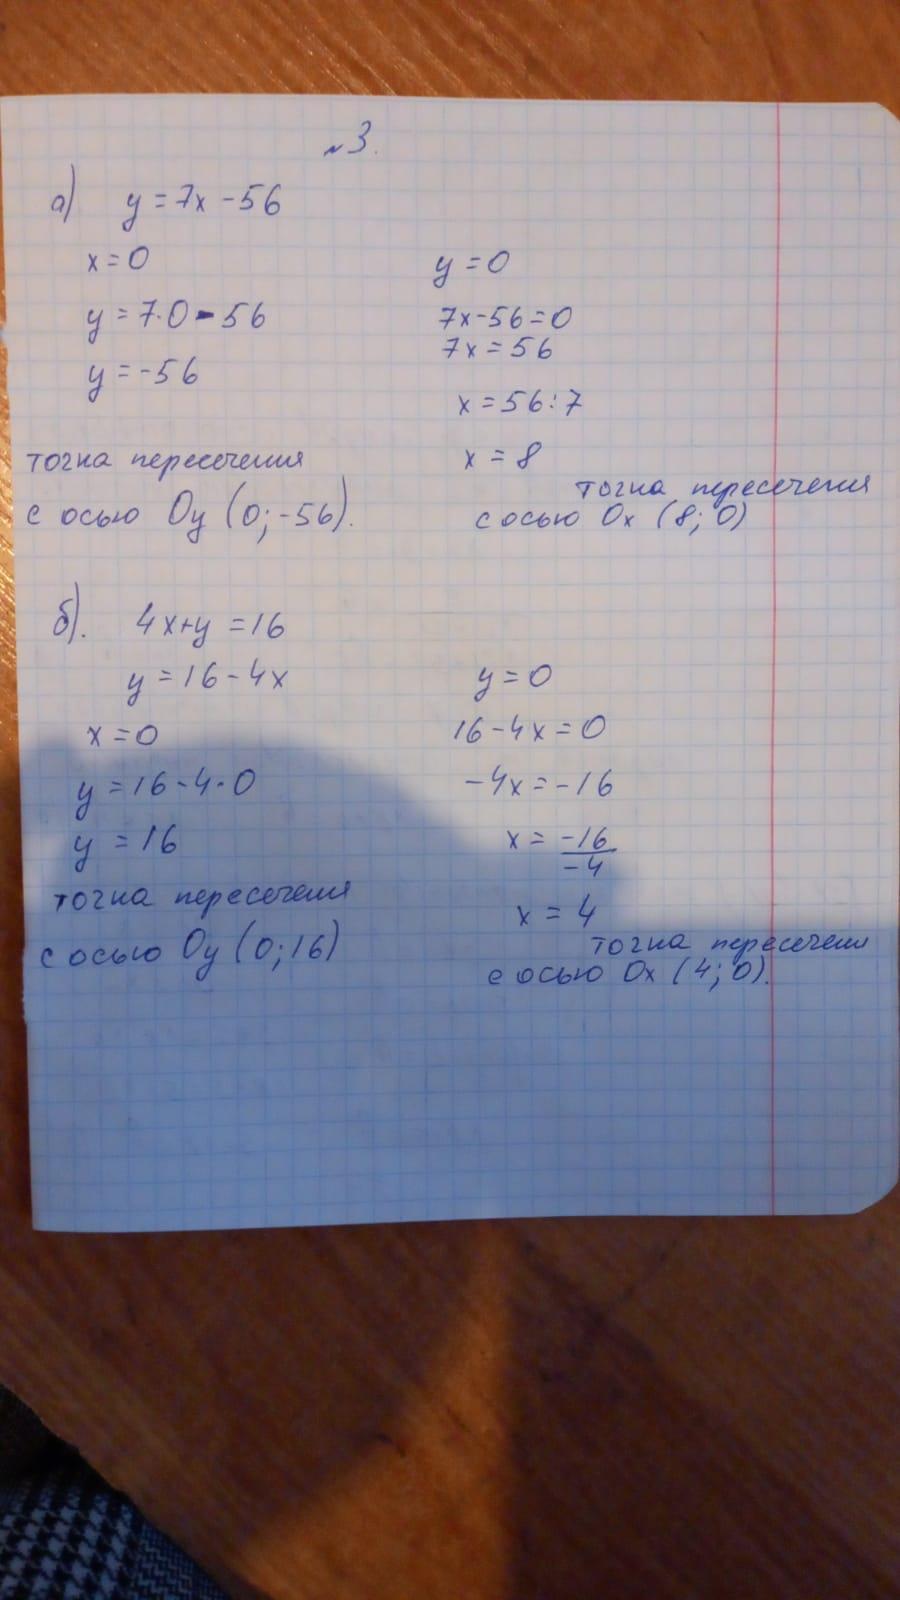 №3.
а) y = 7x - 56
x = 0
y = 7·0 - 56
y = -56
точка пересечения
с осью Oy (0; -56).
y = 0
7x - 56 = 0
7x = 56
x = 56 : 7
x = 8
точка пересечения
с осью Ox (8; 0)
б). 4x + y = 16
y = 16 - 4x
x = 0
y = 16 - 4·0
y = 16
точка пересечения
с осью Oy (0; 16)
y = 0
16 - 4x = 0
-4x = -16
x = -16/-4
x = 4
точка пересечения
с осью Ox (4; 0).